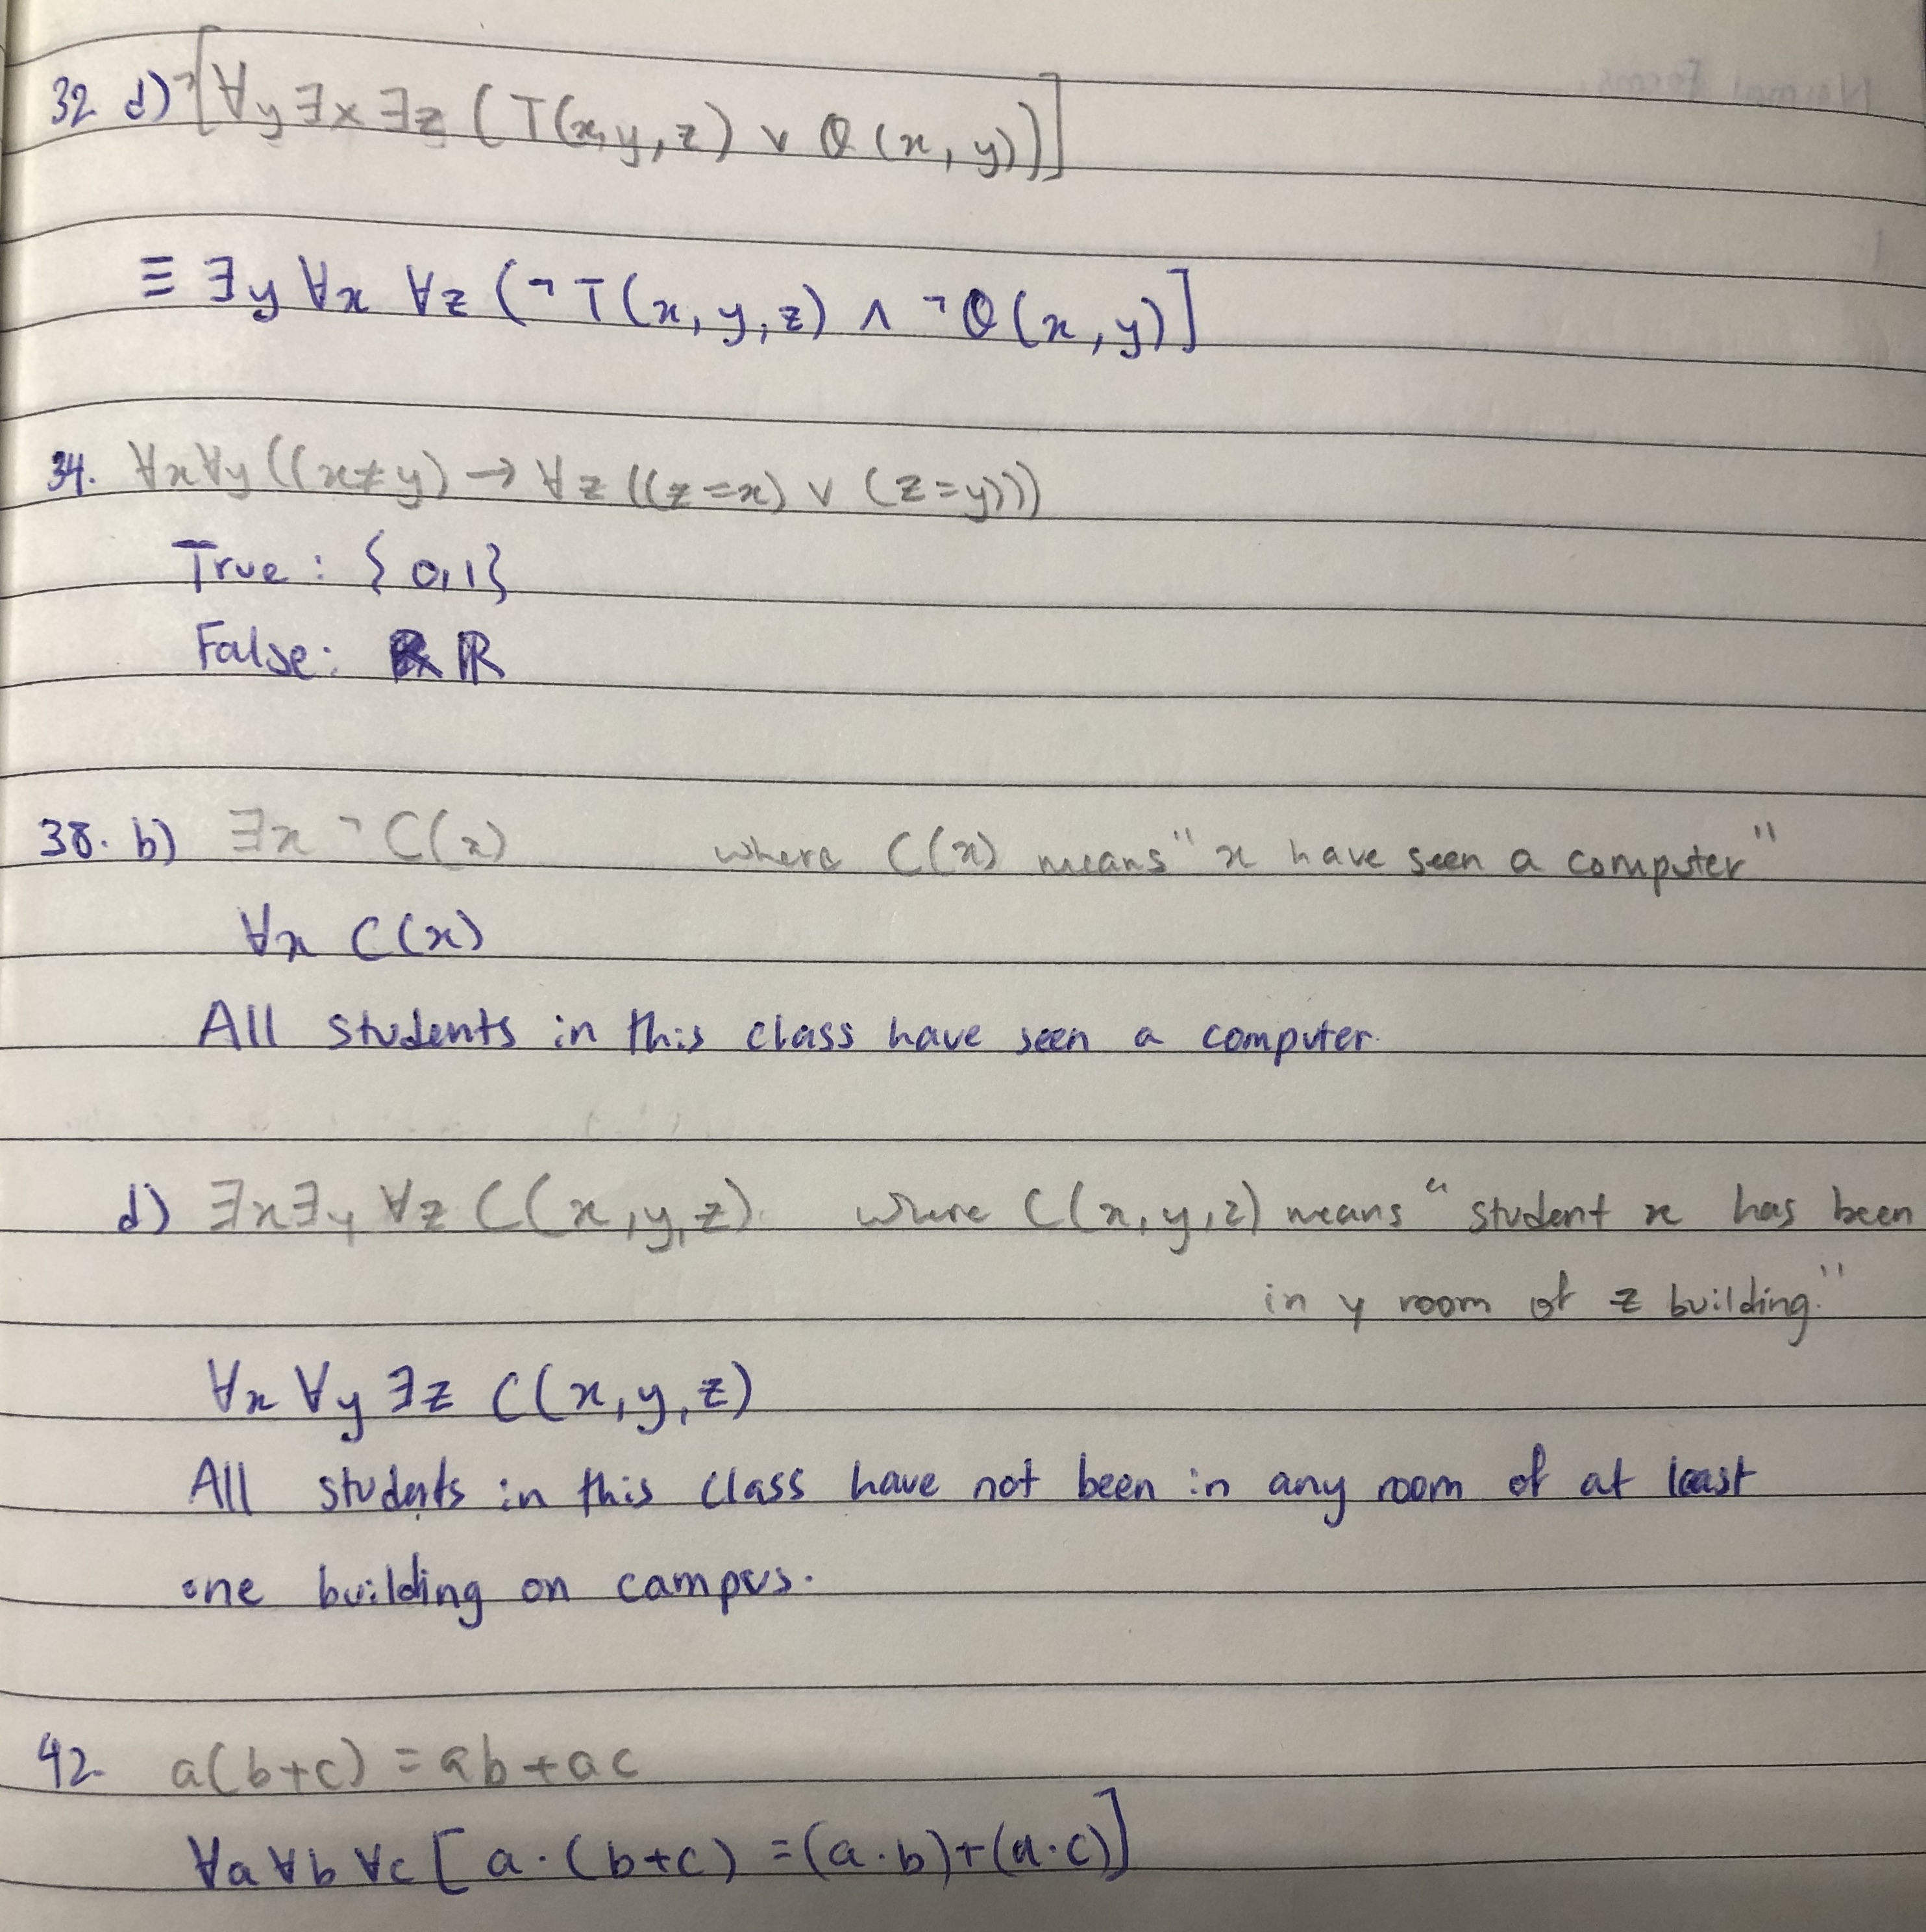 32 d) ¬[∀y ∃x ∃z (T(x,y,z) ∨ Q(x,y))]
≡ ∃y ∀x ∀z (¬T(x,y,z) ∧ ¬Q(x,y)]
34. ∀x∀y((x≠y) → ∀z((z=x) ∨ (z=y)))
True : {0,1}
False: ℝ
38. b) ∃x ¬C(x) where C(x) means "x have seen a computer"
∀x C(x)
All students in this class have seen a computer.
d) ∃x∃y ∀z C(x,y,z). where C(x,y,z) means "student x has been
in y room of z building."
∀x ∀y ∃z C(x,y,z)
All students in this class have not been in any room of at least
one building on campus.
42. a(b+c) = ab+ac
∀a ∀b ∀c [a·(b+c) = (a·b)+(a·c)]